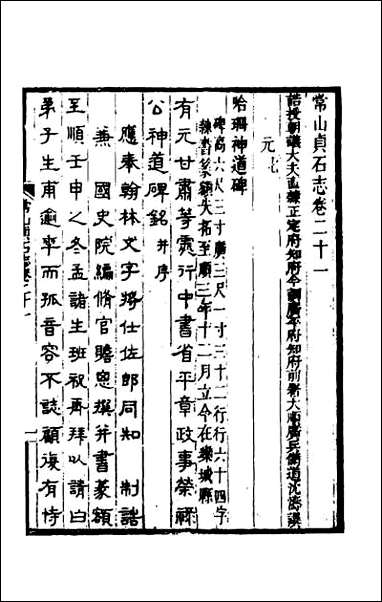 常山貞石志卷二十一
誥授朝議大夫直隸正定府知府今調廣平府知府前署大順廣兵備道沈濤譔
元七
哈珊神道碑
碑高六尺三寸廣三尺一寸三十二行行六十四字
隸書篆額失拓至順三年十二月立今在欒城縣
有元甘肅等處行中書省平章政事榮祿
公神道碑銘 并序
應奉翰林文字將仕佐郎同知 制誥
兼 國史院編脩官瞻思撰并書篆額
至順壬申之冬孟諸生班祝再拜以請曰
弟子生甫逾卒而孤音容不誌顧復有恃
一